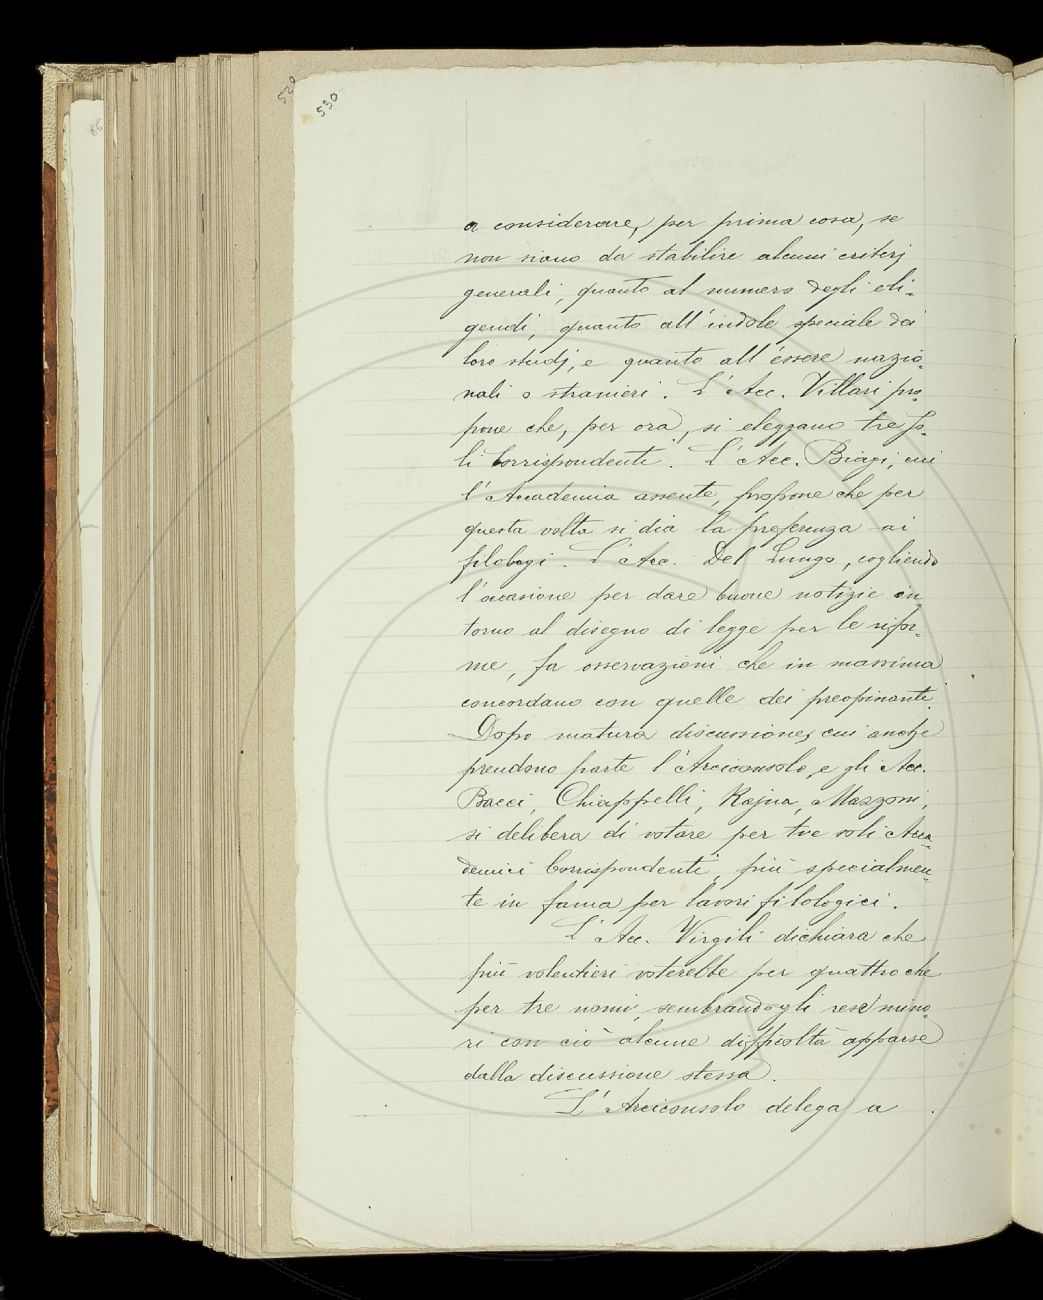 530
a considerare, per prima cosa, se
non siano da stabilire alcuni criterj
generali, quanto al numero degli eli-
gendi, quanto all'indole speciale dei
loro studj, e quanto all'éssere nazio-
nali o stranieri. L'Acc. Villari pro-
pone che, per ora, si eleggano tre so-
li Corrispondenti. L'Acc. Biagi, cui
l'Accademia assente, propone che per
questa volta si dia la preferenza ai
filologi. L'Acc. Del Lungo, cogliendo
l'occasione per dare buone notizie in-
torno al disegno di legge per le rifor-
me, fa osservazioni che in massima
concordano con quelle dei preopinanti.
Dopo matura discussione, cui anche
prendono parte l'Arciconsolo, e gli Acc.
Bacci, Chiappelli, Rajna, Mazzoni,
si delibera di votare per tre soli Acca-
demici Corrispondenti, più specialmen-
te in fama per lavori filologici.
L'Acc. Virgili dichiara che
più volentieri voterebbe per quattro che
per tre nomi, sembrandogli rese mino-
ri con ciò alcune difficoltà apparse
dalla discussione stessa.
L'Arciconsolo delega a